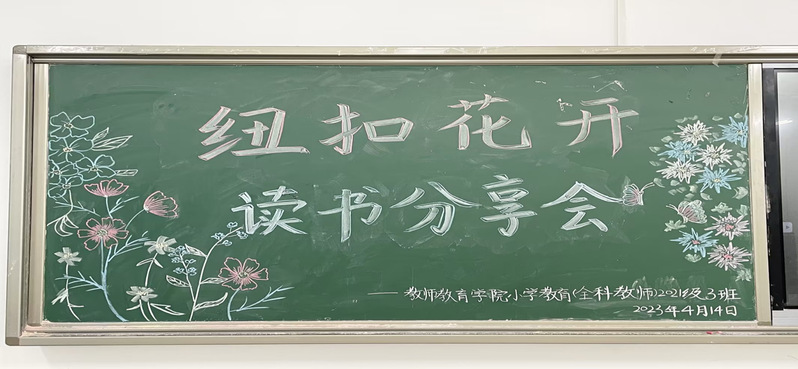 纽扣花开
读书分享会
——教师教育学院小学教育(全科教师)2021级3班
2023年4月14日